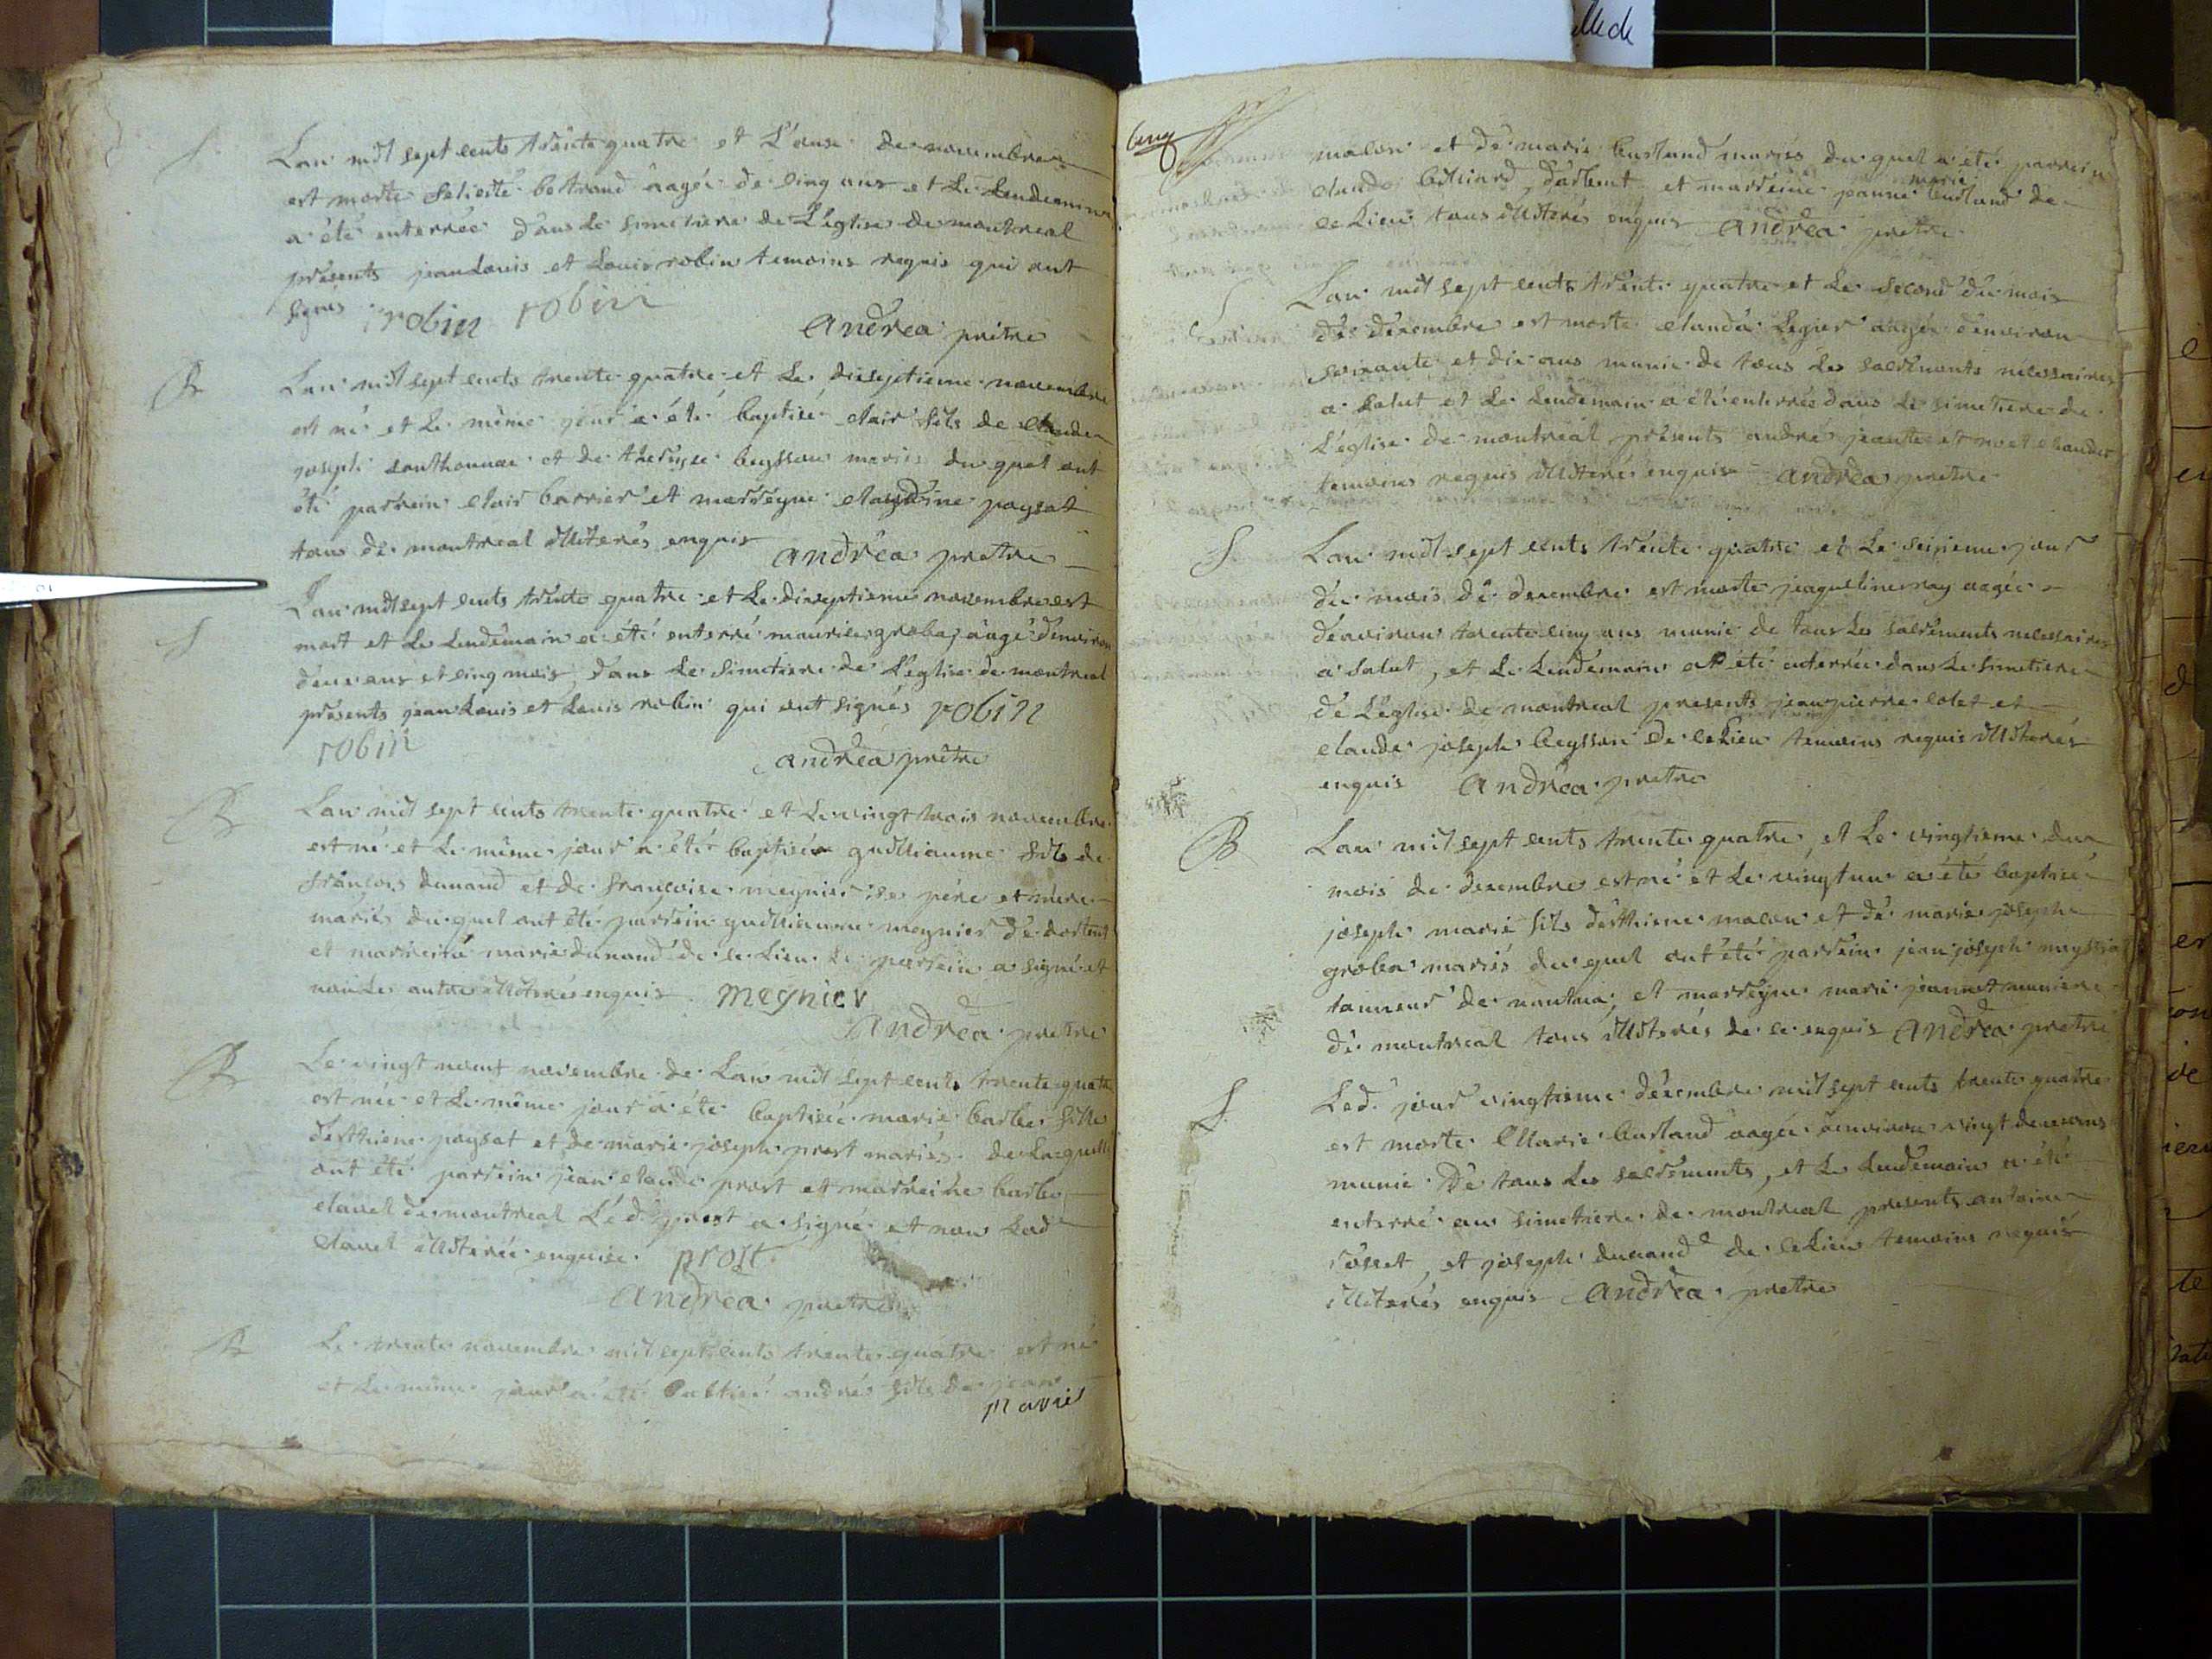 S
Lan mil sept cents trente quatre et L'onse de novembre
est morte felicité bertrand aagée de cinq ans et Le Lendemain
a été enterrée dans Le simetiere de L'église de montreal
présents jean Louis et Louis robin temoins requis qui ont
signés robin robin
andréa prêtre
B
Lan mil sept cents trente quatre et Le dixseptieme novembre
est né et Le même jour a été baptisé clair fils de claude
joseph southonnax et de theresse beysson mariés du quel ont
été parrein clair barrier et marrêyne claudine paysat
tous de montreal illiterés enquis andréa pretre
S
Lan mil sept cents trente quatre et Le dixseptieme novembre est
mort et Le Lendemain a été enterré maurice groba, aagé d'environ
deux ans et cinq mois, dans Le simetiere de L'église de montreal
présents jean Louis et Louis robin qui ont signés robin
robin
andréa prêtre
B
Lan mil sept cents trente quatre et Le vingt trois novembre
est né et Le même jour a été baptisé guilliaume fils de
françois dunand et de françoise megnier ses père et mère
mariés du quel ont été parrein guilliaume megnier de dortent
et marreine marie dunand de ce Lieu Le parrein a signé et
non Les autres illiterés enquis megnier
andréa pretre
B
Le vingt neuf novembre de Lan mil sept cents trente quatre
est née et Le même jour a été baptisée marie barbe fille
d'esthiene paysat et de marie joseph prost mariés de Laquelle
ont été parrein jean claude prost et marreine barbe
clavel de montreal Led. prost a signé et non Lad.
clavel illiterée enquise. prost
andréa pretre
B
Le trente novembre mil sept cents trente quatre est né
et Le même jour a été andré fils de jean
marie
cinq
malon et de marie burland mariés du quel a été parrein
claude billiard, d'arbent et marreine jeanne marie burland de
ce Lieu tous illiterés enquis andréa pretre
S
Lan mil sept cents trente quatre et Le second du mois
de décembre est morte clauda Legier aagée d'environ
soixante et dix ans munie de tous Les sacrements nécessaires
a salut et Le Lendemain a été enterrée dans Le simetiere de
L'église de montréal présents andré et
temoins requis illiterés enquis andréa pretre
S
Lan mil sept cents trente quatre et Le seizieme jour
du mois de decembre est morte jaqueline ray aagée
d'environ trente cinq ans munie de tous Les sacrements necessaires
a salut, et Le Lendemain a été enterrée dans Le simetiere
de L'église de montreal presents jean pierre colet et
claude joseph beysson de ce Lieu temoins requis illiterés
enquis andréa pretre
B
Lan mil sept cents trente quatre, et Le vingtieme du
mois de decembre est né et Le vingt un a été baptisé
joseph marie fils d'esthiene malon et de marie josephe
groba mariés du quel ont été parrein jean joseph
tanneur de nantua, et marrêyne marie
de montreal tous illiterés de ce enquis andréa pretre
S.
Led. jour vingtieme décembre mil sept cents trente quatre
est morte Marie burland aagée d'environ vingt deux ans
munie de tous Les sacréments, et Le Lendemain a été
enterré au simetiere de montreal presents antoine
rosset, et joseph dunand de ce Lieu temoins requis
illiterés enquis andréa pretre